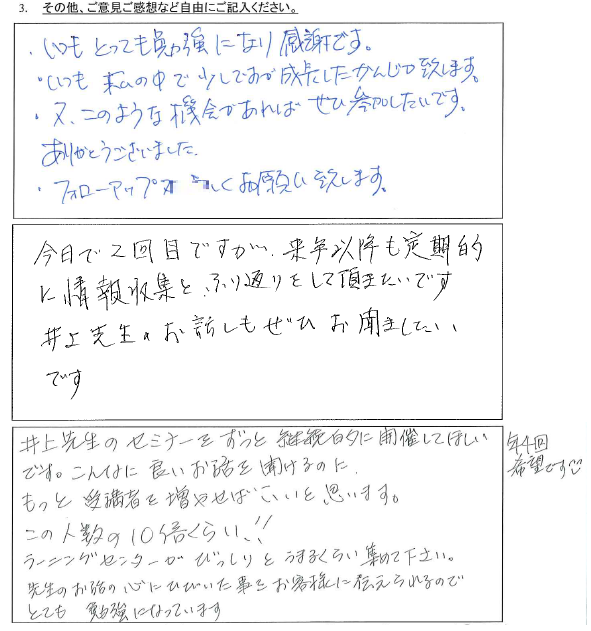 3. その他、ご意見ご感想など自由にご記入ください。
・いつもとっても勉強になり感謝です。
・いつも 私の中で少しですが成長したかんじが致します。
・又、このような機会があればぜひ参加したいです。
ありがとうございました。
・フォローアップ しくお願い致します。
今日で2回目ですが、来年以降も定期的
に情報収集と、ふり返りをして頂きたいです
井上先生のお話しもぜひお聞きしたい
です
井上先生のセミナーをずっと継続的に開催してほしい
です。こんなに良いお話を聞けるのに、
もっと受講者を増やせばいいと思います。
この人数の10倍くらい!!
ラーニングセンターがびっしりとうまるくらい集めて下さい。
先生のお話の心にひびいた事をお客様に伝えられるので
とても 勉強になっています
年4回
希望です